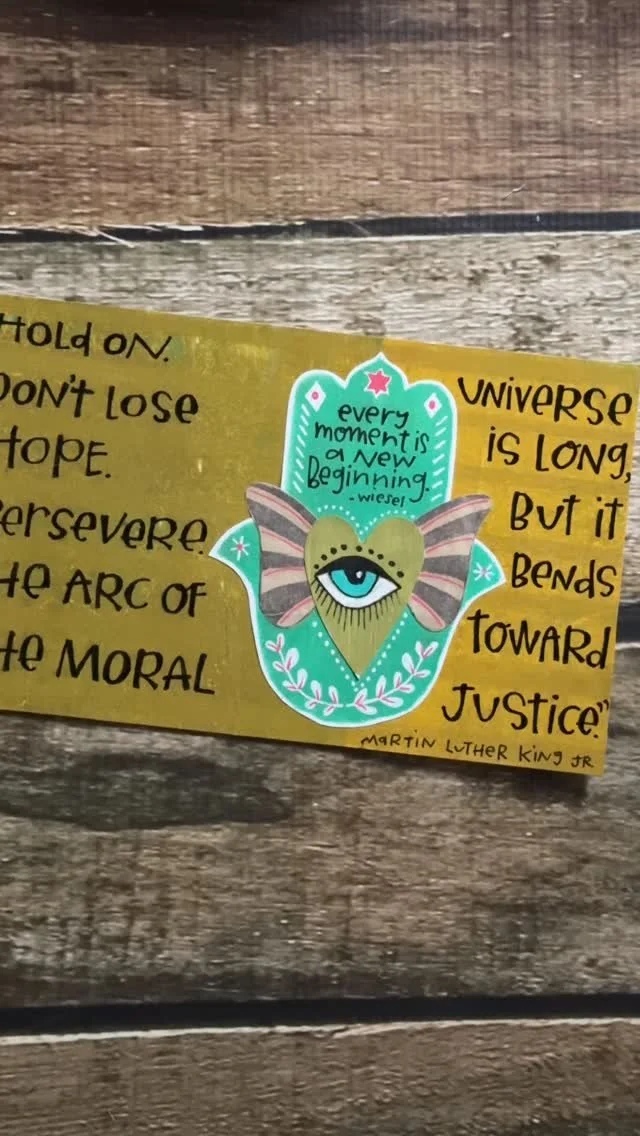 Hold on.
Don't lose
Hope.
Persevere.
the ARC of
the MORAL
every
moment is
a new
Beginning.
- wiesel
universe
is LONG,
But it
Bends
toward
Justice."
Martin Luther King Jr